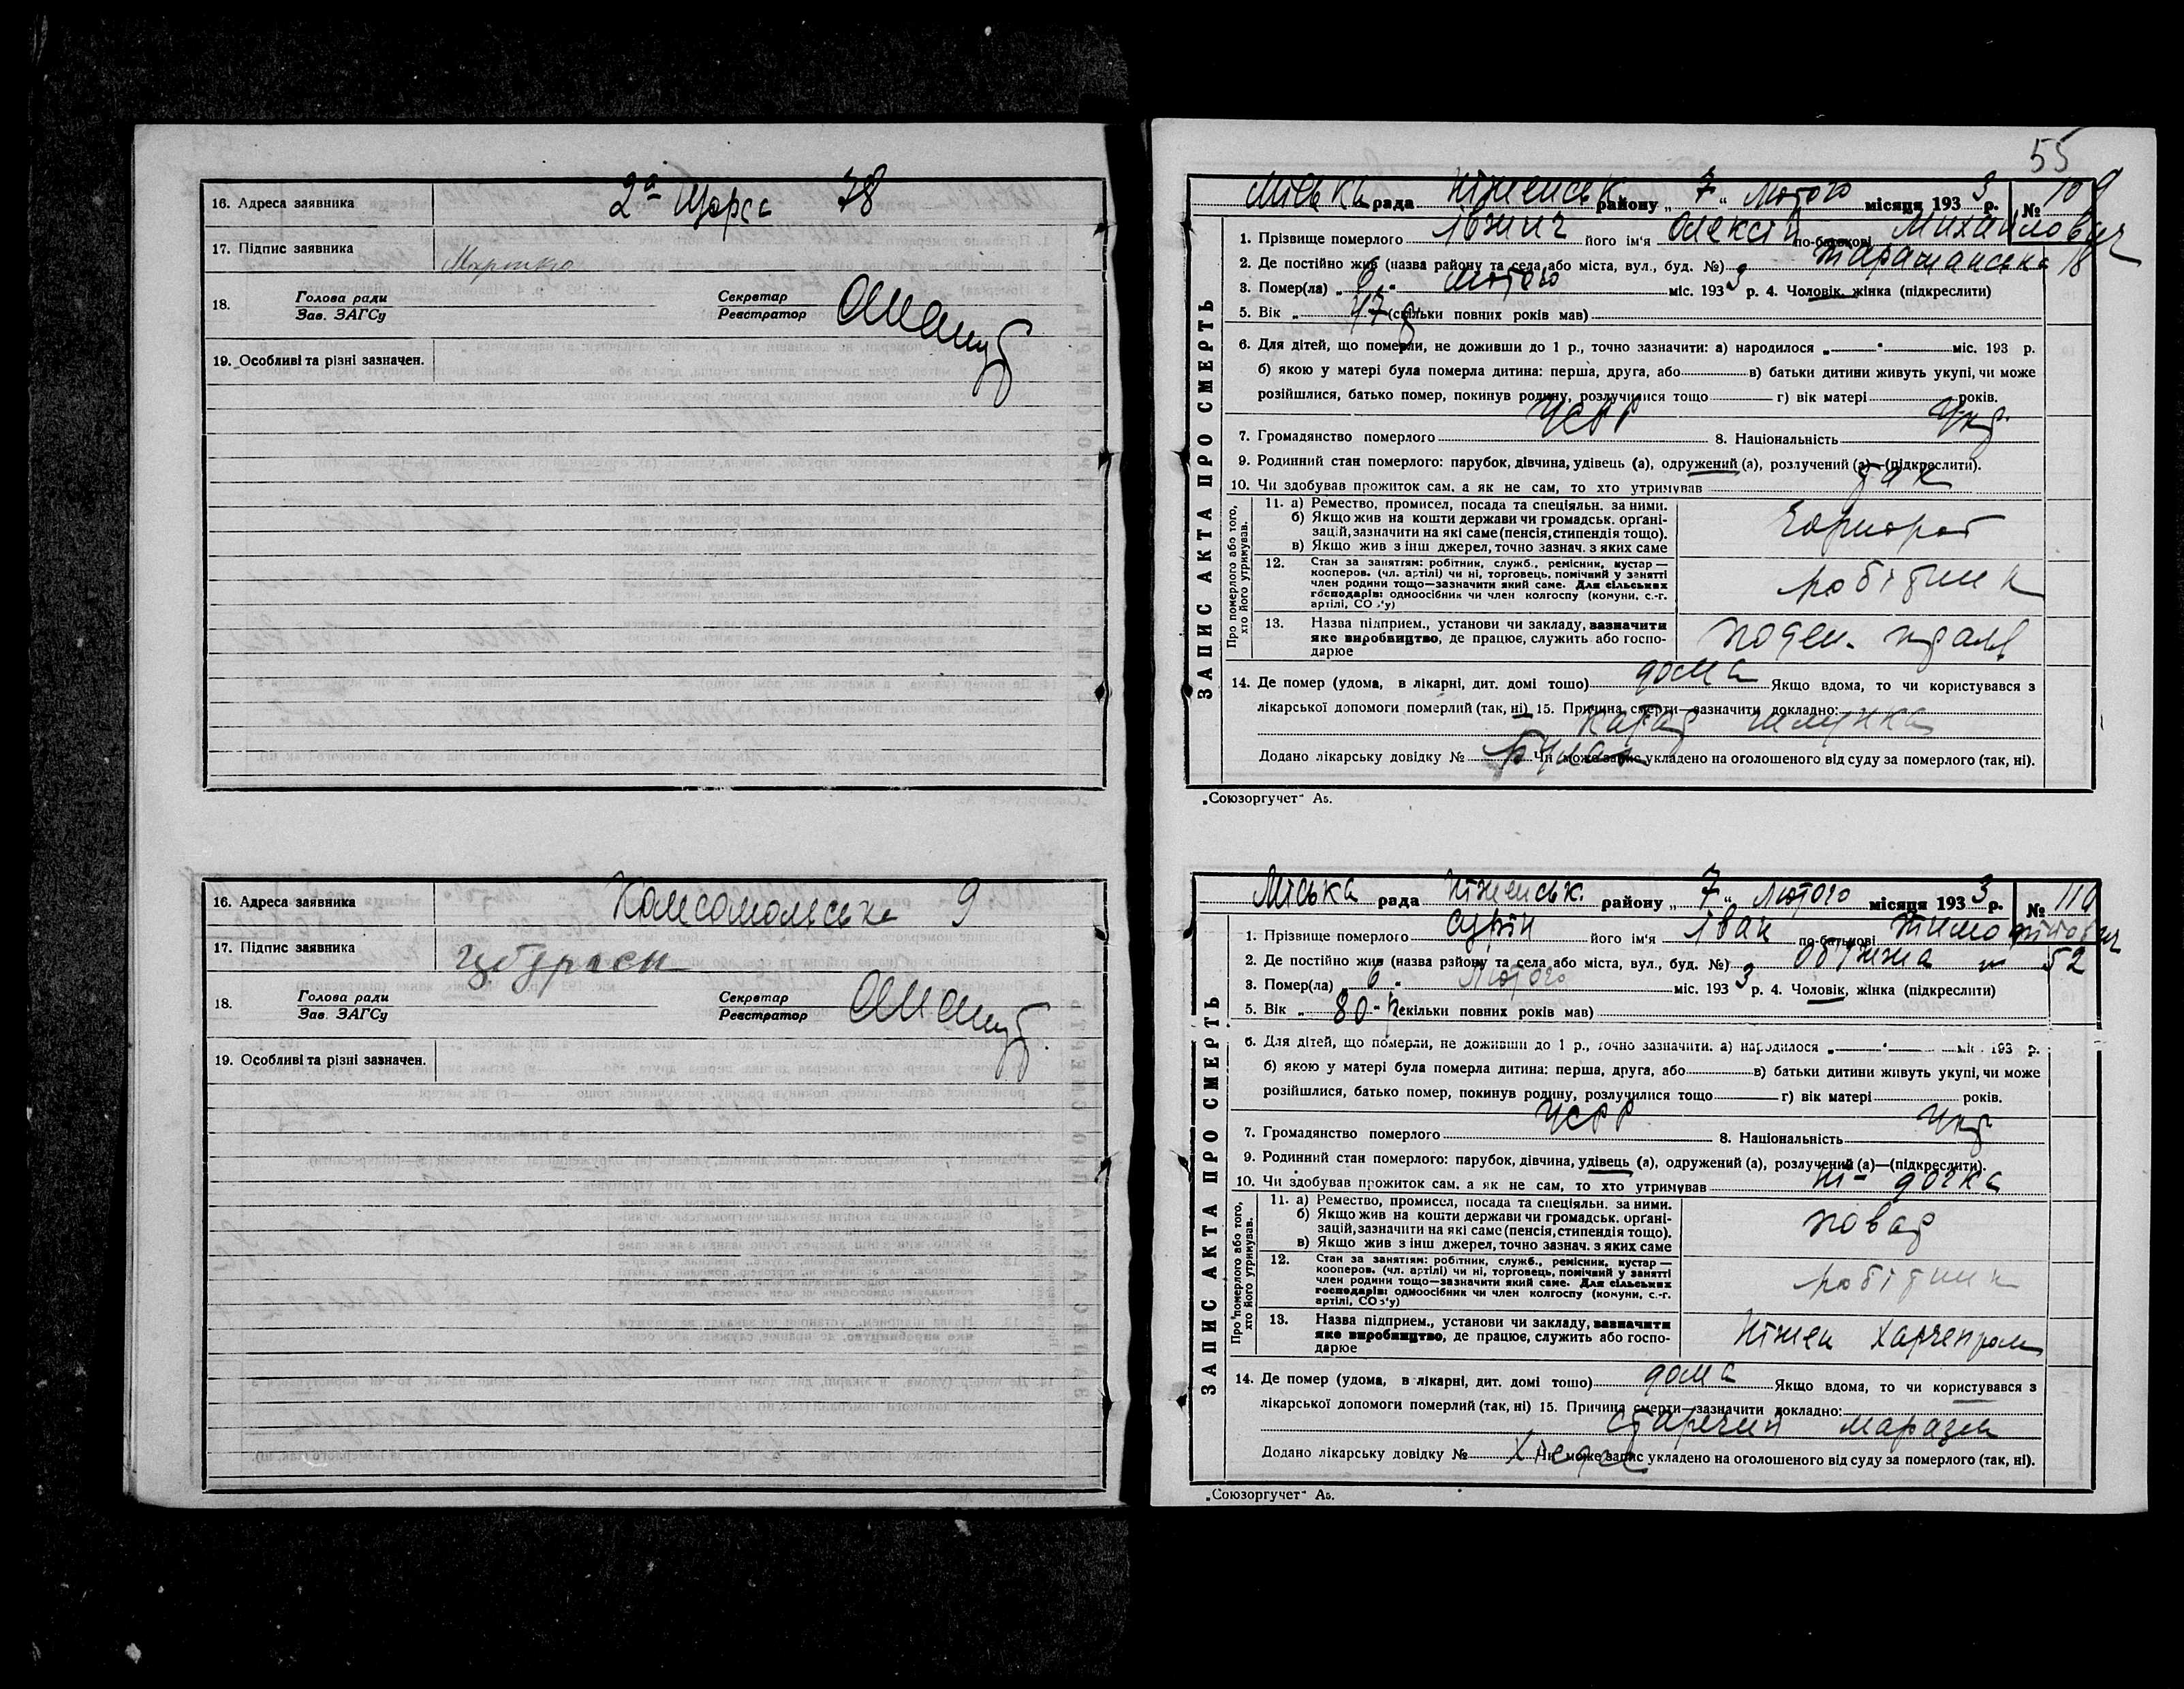 16. Адреса заявника 2а Щорса 78
17. Підпис заявника
18. Голова ради
Зав. ЗАГСу
Секретар
Реєстратор
19. Особливі та різні зазначен.
16. Адреса заявника Комсомольська 9
17. Підпис заявника
18. Голова ради
Зав. ЗАГСу
Секретар
Реєстратор
19. Особливі та різні зазначен.
55
ЗАПИС АКТА ПРО СМЕРТЬ
Міська рада Ніженськ району „ 7 “ Лютого місяця 1933 р. № 109
1. Прізвище померлого його ім'я Олексій по-батькові Михайлович
2. Де постійно жив (назва району та села або міста, вул., буд. №) Таращанська 18
3. Помер(ла) „ 6 „ Лютого міс. 1933 р. 4. Чоловік, жінка (підкреслити)
5. Вік „ 47 р (скільки повних років мав)
6. Для дітей, що померли, не доживши до 1 р., точно зазначити: а) народилося „ “ міс. 193 р.
б) якою у матері була померла дитина: перша, друга, або в) батьки дитини живуть укупі, чи може
розійшлися, батько помер, покинув родину, розлучилися тощо г) вік матері років.
7. Громадянство померлого УСРР 8. Національність Укр.
9. Родинний стан померлого: парубок, дівчина, удівець (а), одружений (а), розлучений (а)—(підкреслити).
10. Чи здобував прожиток сам, а як не сам, то хто утримував так
Про померлого або того,
хто його утримував.
11. а) Ремество, промисел, посада та спеціяльн. за ними.
б) Якщо жив на кошти держави чи громадськ. органі-
зацій, зазначити на які саме (пенсія, стипендія тощо).
в) Якщо жив з інш джерел, точно зазнач. з яких саме
Чорнороб
12. Стан за заняттям: робітник, служб., ремісник, кустар —
кооперов. (чл. артілі) чи ні, торговець, помічний у занятті
член родини тощо—зазначити який саме. Для сільських
господарів: одноосібник чи член колгоспу (комуни, с.-г.
артілі, СОЗ'у)
робітник
13. Назва підприєм., установи чи закладу, зазначити
яке виробництво, де працює, служить або госпо-
дарює
поден. праля
14. Де помер (удома, в лікарні, дит. домі тощо) дома Якщо вдома, то чи користувався з
лікарської допомоги померлий (так, ні) 15. Причина смерти—зазначити докладно:
катар шлунка
Додано лікарську довідку № Чи може запис укладено на оголошеного від суду за померлого (так, ні).
„Союзоргучет“ А5.
ЗАПИС АКТА ПРО СМЕРТЬ
Міська рада Ніженськ. району „ 7 “ Лютого місяця 1933 р. № 110
1. Прізвище померлого Сурін його ім'я Іван по-батькові Тимофійович
2. Де постійно жив (назва району та села або міста, вул., буд. №) Об'їжжа 52
3. Помер(ла) „ 6 “ Лютого міс. 1933 р. 4. Чоловік, жінка (підкреслити)
5. Вік „ 80-р (скільки повних років мав)
6. Для дітей, що померли, не доживши до 1 р., точно зазначити. а) народилося „ “ міс. 193 р.
б) якою у матері була померла дитина: перша, друга, або в) батьки дитини живуть укупі, чи може
розійшлися, батько помер, покинув родину, розлучилися тощо г) вік матері років.
7. Громадянство померлого УСРР 8. Національність Укр
9. Родинний стан померлого: парубок, дівчина, удівець (а), одружений (а), розлучений (а)—(підкреслити).
10. Чи здобував прожиток сам, а як не сам, то хто утримував ні - дочка
Про померлого або того,
хто його утримував.
11. а) Ремество, промисел, посада та спеціяльн. за ними.
б) Якщо жив на кошти держави чи громадськ. органі-
зацій, зазначити на які саме (пенсія, стипендія тощо).
в) Якщо жив з інш джерел, точно зазнач. з яких саме
повар
12. Стан за заняттям: робітник, служб., ремісник, кустар —
кооперов. (чл. артілі) чи ні, торговець, помічний у занятті
член родини тощо—зазначити який саме. Для сільських
господарів: одноосібник чи член колгоспу (комуни, с.-г.
артілі, СОЗ'у)
робітник
13. Назва підприєм., установи чи закладу, зазначити
яке виробництво, де працює, служить або госпо-
дарює
Ніжен Харчепром
14. Де помер (удома, в лікарні, дит. домі тощо) дома Якщо вдома, то чи користувався з
лікарської допомоги померлий (так, ні) 15. Причина смерти—зазначити докладно:
старечий маразм
Додано лікарську довідку № Чи може запис укладено на оголошеного від суду за померлого (так, ні).
„Союзоргучет“ А5.